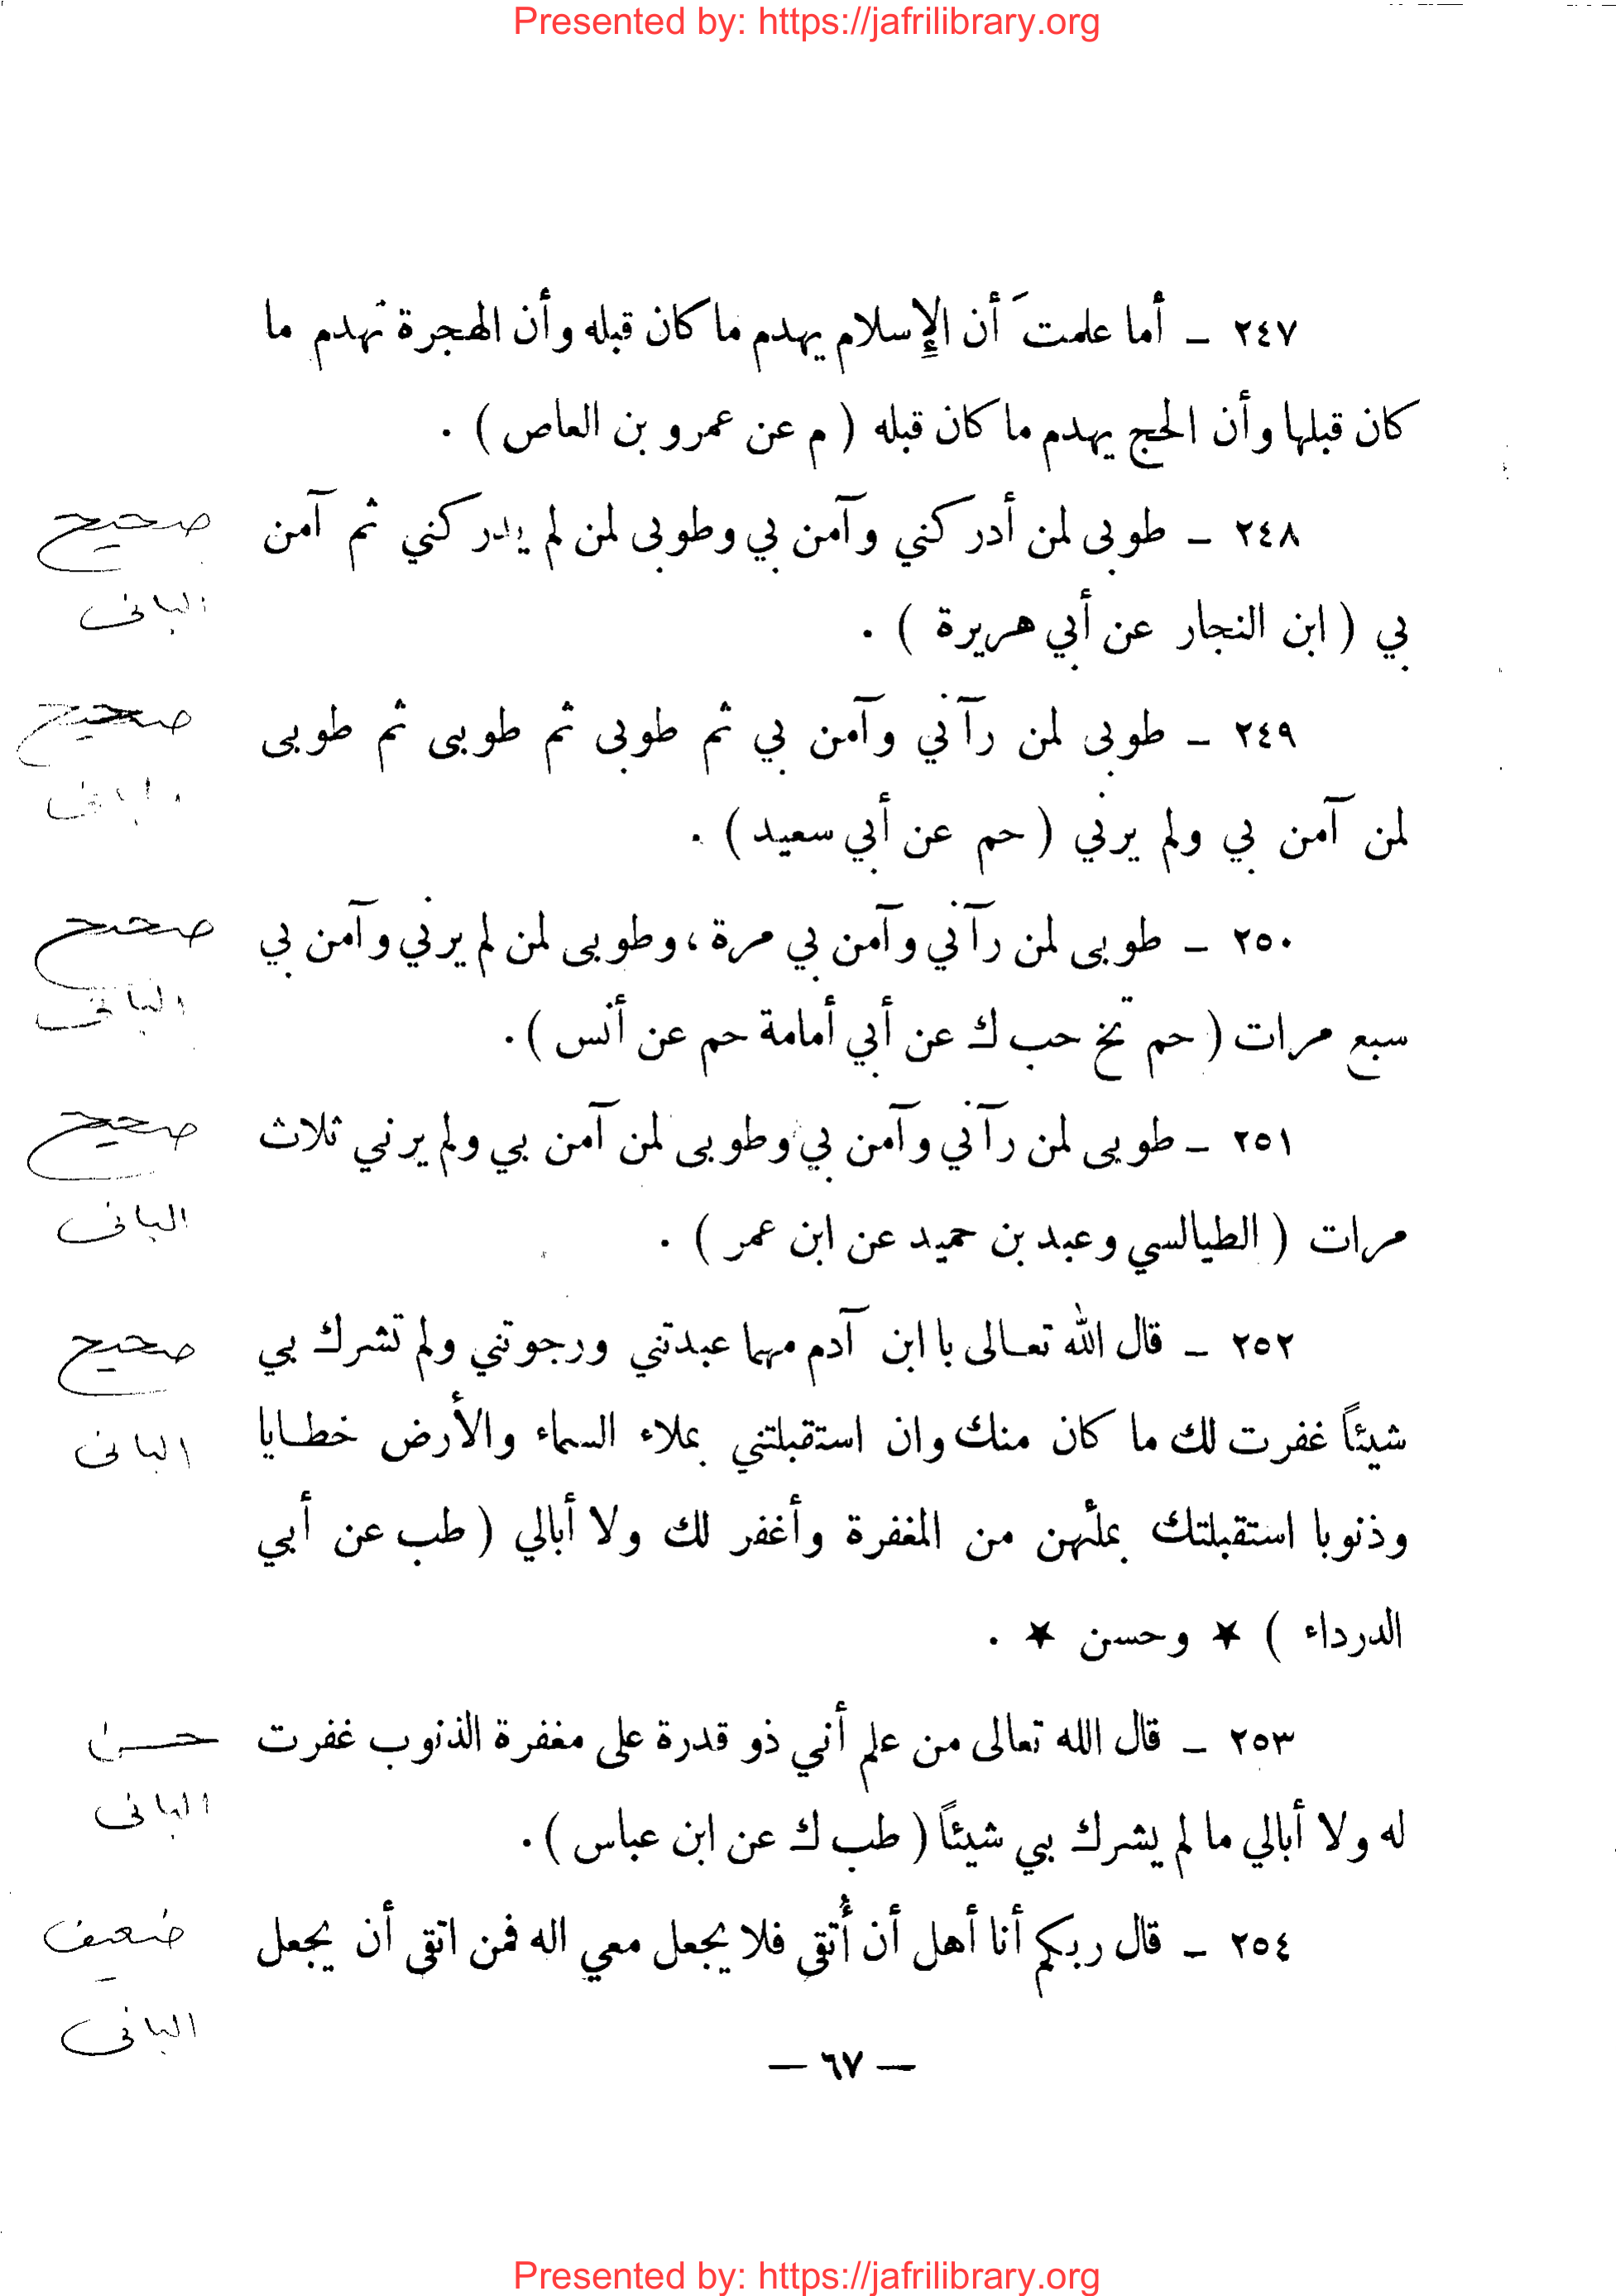 Presented by: https://jafrilibrary.org
٢٤٧ ـ أما علمتَ أن الإِسلام يهدم ما كان قبله وأن الهجرة تهدم ما
كان قبلها وأن الحج يهدم ما كان قبله ( م عن عمرو بن العاص ) .
٢٤٨ ـ طوبى لمن أدركني وآمن بي وطوبى لمن لم يدركني ثم آمن
صحيح
بي ( ابن النجار عن أبي هريرة ) .
البانى
٢٤٩ ـ طوبى لمن رآني وآمن بي ثم طوبى ثم طوبى ثم طوبى
صحيح
لمن آمن بي ولم يرني ( حم عن أبي سعيد ) .
٢٥٠ ـ طوبى لمن رآني وآمن بي مرة ، وطوبى لمن لم يرني وآمن بي
صحيح
سبع مرات ( حم تخ حب ك عن أبي أمامة حم عن أنس ) .
البانى
٢٥١ ـ طوبى لمن رآني وآمن بي وطوبى لمن آمن بي ولم يرني ثلاث
صحيح
مرات ( الطيالسي وعبد بن حميد عن ابن عمر ) .
البانى
٢٥٢ ـ قال الله تعالى با ابن آدم مهما عبدتني ورجوتني ولم تشرك بي
صحيح
شيئاً غفرت لك ما كان منك وان استقبلتني بملاء السماء والأرض خطايا
البانى
وذنوبا استقبلتك بملئهن من المغفرة وأغفر لك ولا أبالي ( طب عن أبي
الدرداء ) ★ وحسن ★ .
٢٥٣ ـ قال الله تعالى من علم أني ذو قدرة على مغفرة الذنوب غفرت
حسن
له ولا أبالي ما لم يشرك بي شيئاً ( طب ك عن ابن عباس ) .
البانى
٢٥٤ ـ قال ربكم أنا أهل أن أُتقى فلا يجعل معي اله فمن اتقى أن يجعل
ضعيف
البانى
— ٦٧ —
Presented by: https://jafrilibrary.org